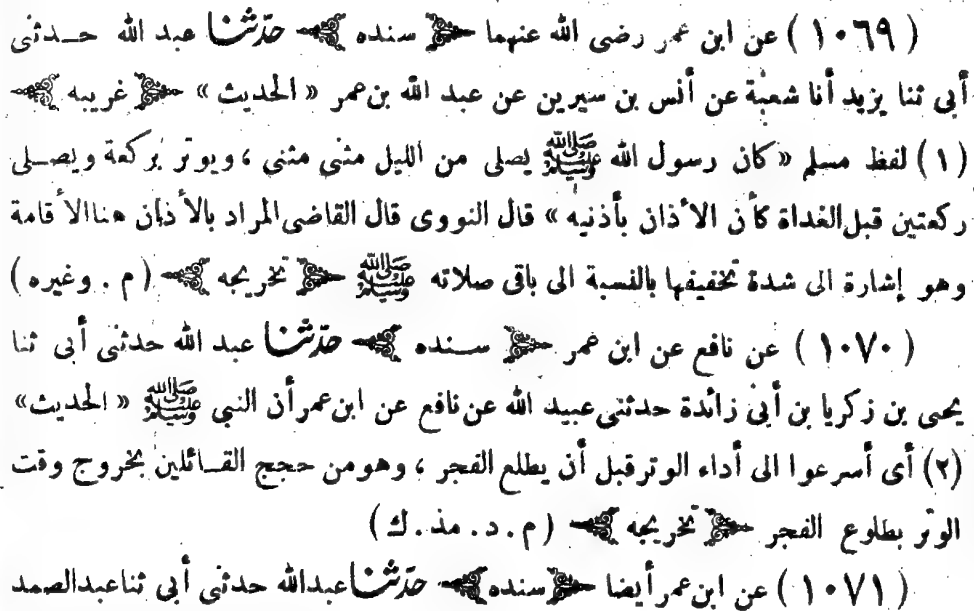 ( ١٠٦٩ ) عن ابن عمر رضى الله عنهما ﴿ سنده ﴾ حدّثنا عبد الله حـدثنى
أبى ثنا يزيد أنا شعبة عن أنس بن سيرين عن عبد الله بن عمر « الحديث » ﴿ غريبه ﴾
( ١ ) لفظ مسلم « كان رسول الله ﷺ يصلى من الليل مثنى مثنى ، ويوتر بركعة ويصـلى
ركعتين قبل الغداة كأن الأذان بأذنيه » قال النووى قال القاضى المراد بالأذان هنا الأقامة
وهو إشارة الى شدة تخفيفها بالنسبة الى باقى صلاته ﷺ ﴿ تخريجه ﴾ ( م . وغيره )
( ١٠٧٠ ) عن نافع عن ابن عمر ﴿ سـنده ﴾ حدّثنا عبد الله حدثنى أبى ثنا
يحيى بن زكريا بن أبى زائدة حدثنى عبيد الله عن نافع عن ابن عمر أن النبي ﷺ « الحديث »
(٢) أى أسرعوا الى أداء الوتر قبل أن يطلع الفجر ، وهو من حجج القـائلين بخروج وقت
الوتر بطلوع الفجر ﴿ تخريجه ﴾ ( م . د . مذ . ك )
( ١٠٧١ ) عن ابن عمر أيضا ﴿ سنده ﴾ حدّثنا عبدالله حدثنى أبى ثنا عبدالصمد